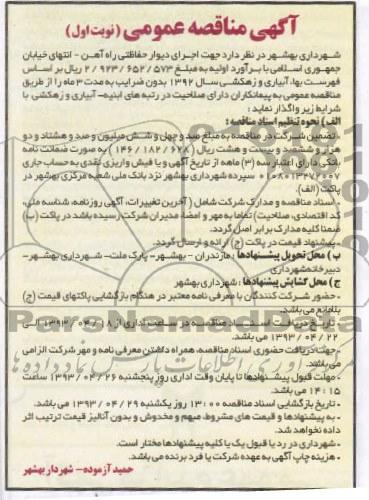 آگهی مناقصه عمومی (نوبت اول)
شهرداری بهشهر در نظر دارد جهت اجرای دیوار حفاظتی راه آهن - انتهای خیابان
جمهوری اسلامی با برآورد اولیه به مبلغ ۲/۹۲۳/۶۵۲/۵۷۳ ریال بر اساس
فهرست بها، آبیاری و زهکشی سال ۱۳۹۲ بدون ضرایب به مدت ۳ ماه را از طریق
مناقصه عمومی به پیمانکاران دارای صلاحیت در رتبه های ابنیه- آبیاری و زهکشی با
شرایط زیر واگذار نماید:
الف) نحوه تنظیم اسناد مناقصه:
- تضمین شرکت در مناقصه به مبلغ صد و چهل و شش میلیون و صد و هشتاد و دو
هزار و ششصد و بیست و هشت ریال (۱۴۶/۱۸۲/۶۲۸) به صورت ضمانت نامه
بانکی دارای اعتبار سه (۳) ماهه از تاریخ آگهی و یا فیش واریزی نقدی به حساب جاری
۰۱۰۸۰۱۳۴۷۲۰۰۷ سپرده شهرداری بهشهر نزد بانک ملی شعبه مرکزی بهشهر در
پاکت (الف).
- اسناد مناقصه و مدارک شرکت شامل (آخرین تغییرات، آگهی روزنامه، شناسه ملی،
کد اقتصادی، صلاحیت) تماما به مهر و امضاء مدیران شرکت رسیده باشد در پاکت (ب)
ضمنا کلیه مدارک برابر اصل گردد.
- پیشنهاد قیمت در پاکت (ج) ارائه و ارسال گردد.
ب) محل تحویل پیشنهادها: مازندران - بهشهر- پارک ملت- شهرداری بهشهر-
دبیرخانه شهرداری
ج) محل گشایش پیشنهادها: شهرداری بهشهر
- حضور شرکت کنندگان با معرفی نامه معتبر در هنگام بازگشایی پاکتهای قیمت (ج)
بلامانع می باشد.
- تاریخ دریافت اسناد مناقصه در ساعت اداری از ۱۸/۰۴/۱۳۹۳ الی
۲۲/۰۴/۱۳۹۳ می باشد.
- جهت دریافت حضوری اسناد مناقصه، همراه داشتن معرفی نامه و مهر شرکت الزامی
می باشد.
- مهلت قبول پیشنهادها تا پایان وقت اداری روز پنجشنبه ۲۶/۰۴/۱۳۹۳ ساعت
۱۴:۱۵ می باشد.
- تاریخ بازگشایی اسناد مناقصه ۱۳:۰۰ روز یکشنبه ۲۹/۰۴/۱۳۹۳ می باشد.
- به پیشنهادها و قیمت های مشروط، مبهم و مخدوش و بدون آنالیز قیمت ترتیب اثر
داده نخواهد شد.
- شهرداری در رد یا قبول یک یا کلیه پیشنهادها مختار است.
- هزینه چاپ آگهی به عهده شرکت یا فرد برنده می باشد.
حمید آزموده- شهردار بهشهر
ParsNamadData